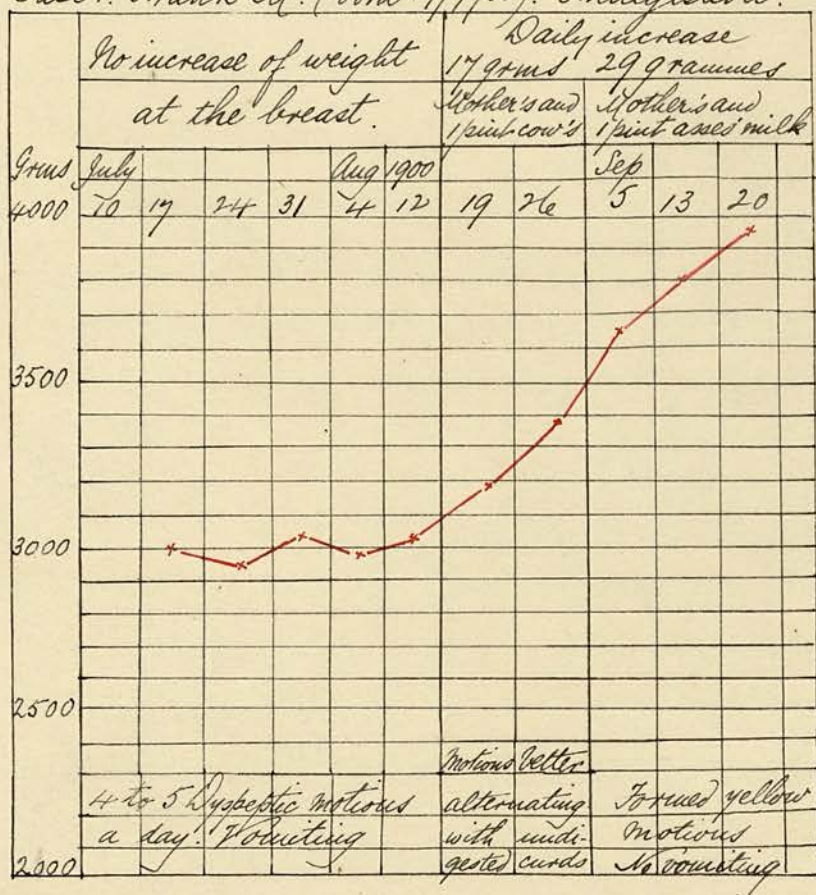 No increase of weight
at the breast.
Daily increase
17 grms 29 grammes
Mother's and
1 pint cow's
Mother's and
1 pint asses' milk
Grms July Aug 1900 Sep
4000 10 17 24 31 4 12 19 26 5 13 20
3500
3000
2500
2000
4 to 5 Dyspeptic motions
a day. Vomiting
Motions better
alternating
with undi-
gested curds
Formed yellow
motions
No vomiting